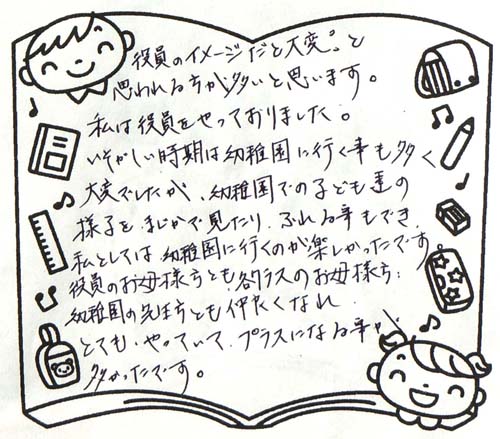 役員のイメージだと"大変"と
思われる方が多いと思います。
私は役員をやっておりました。
いそがしい時期は幼稚園に行く事も多く
大変でしたが、幼稚園での子ども達の
様子を、まじかで見たり、ふれる事もでき、
私としては幼稚園に行くのが楽しかったです。
役員のお母様方とも、各クラスのお母様方、
幼稚園の先生方とも仲良くなれ、
とても、やっていて、プラスになる事が
多かったです。